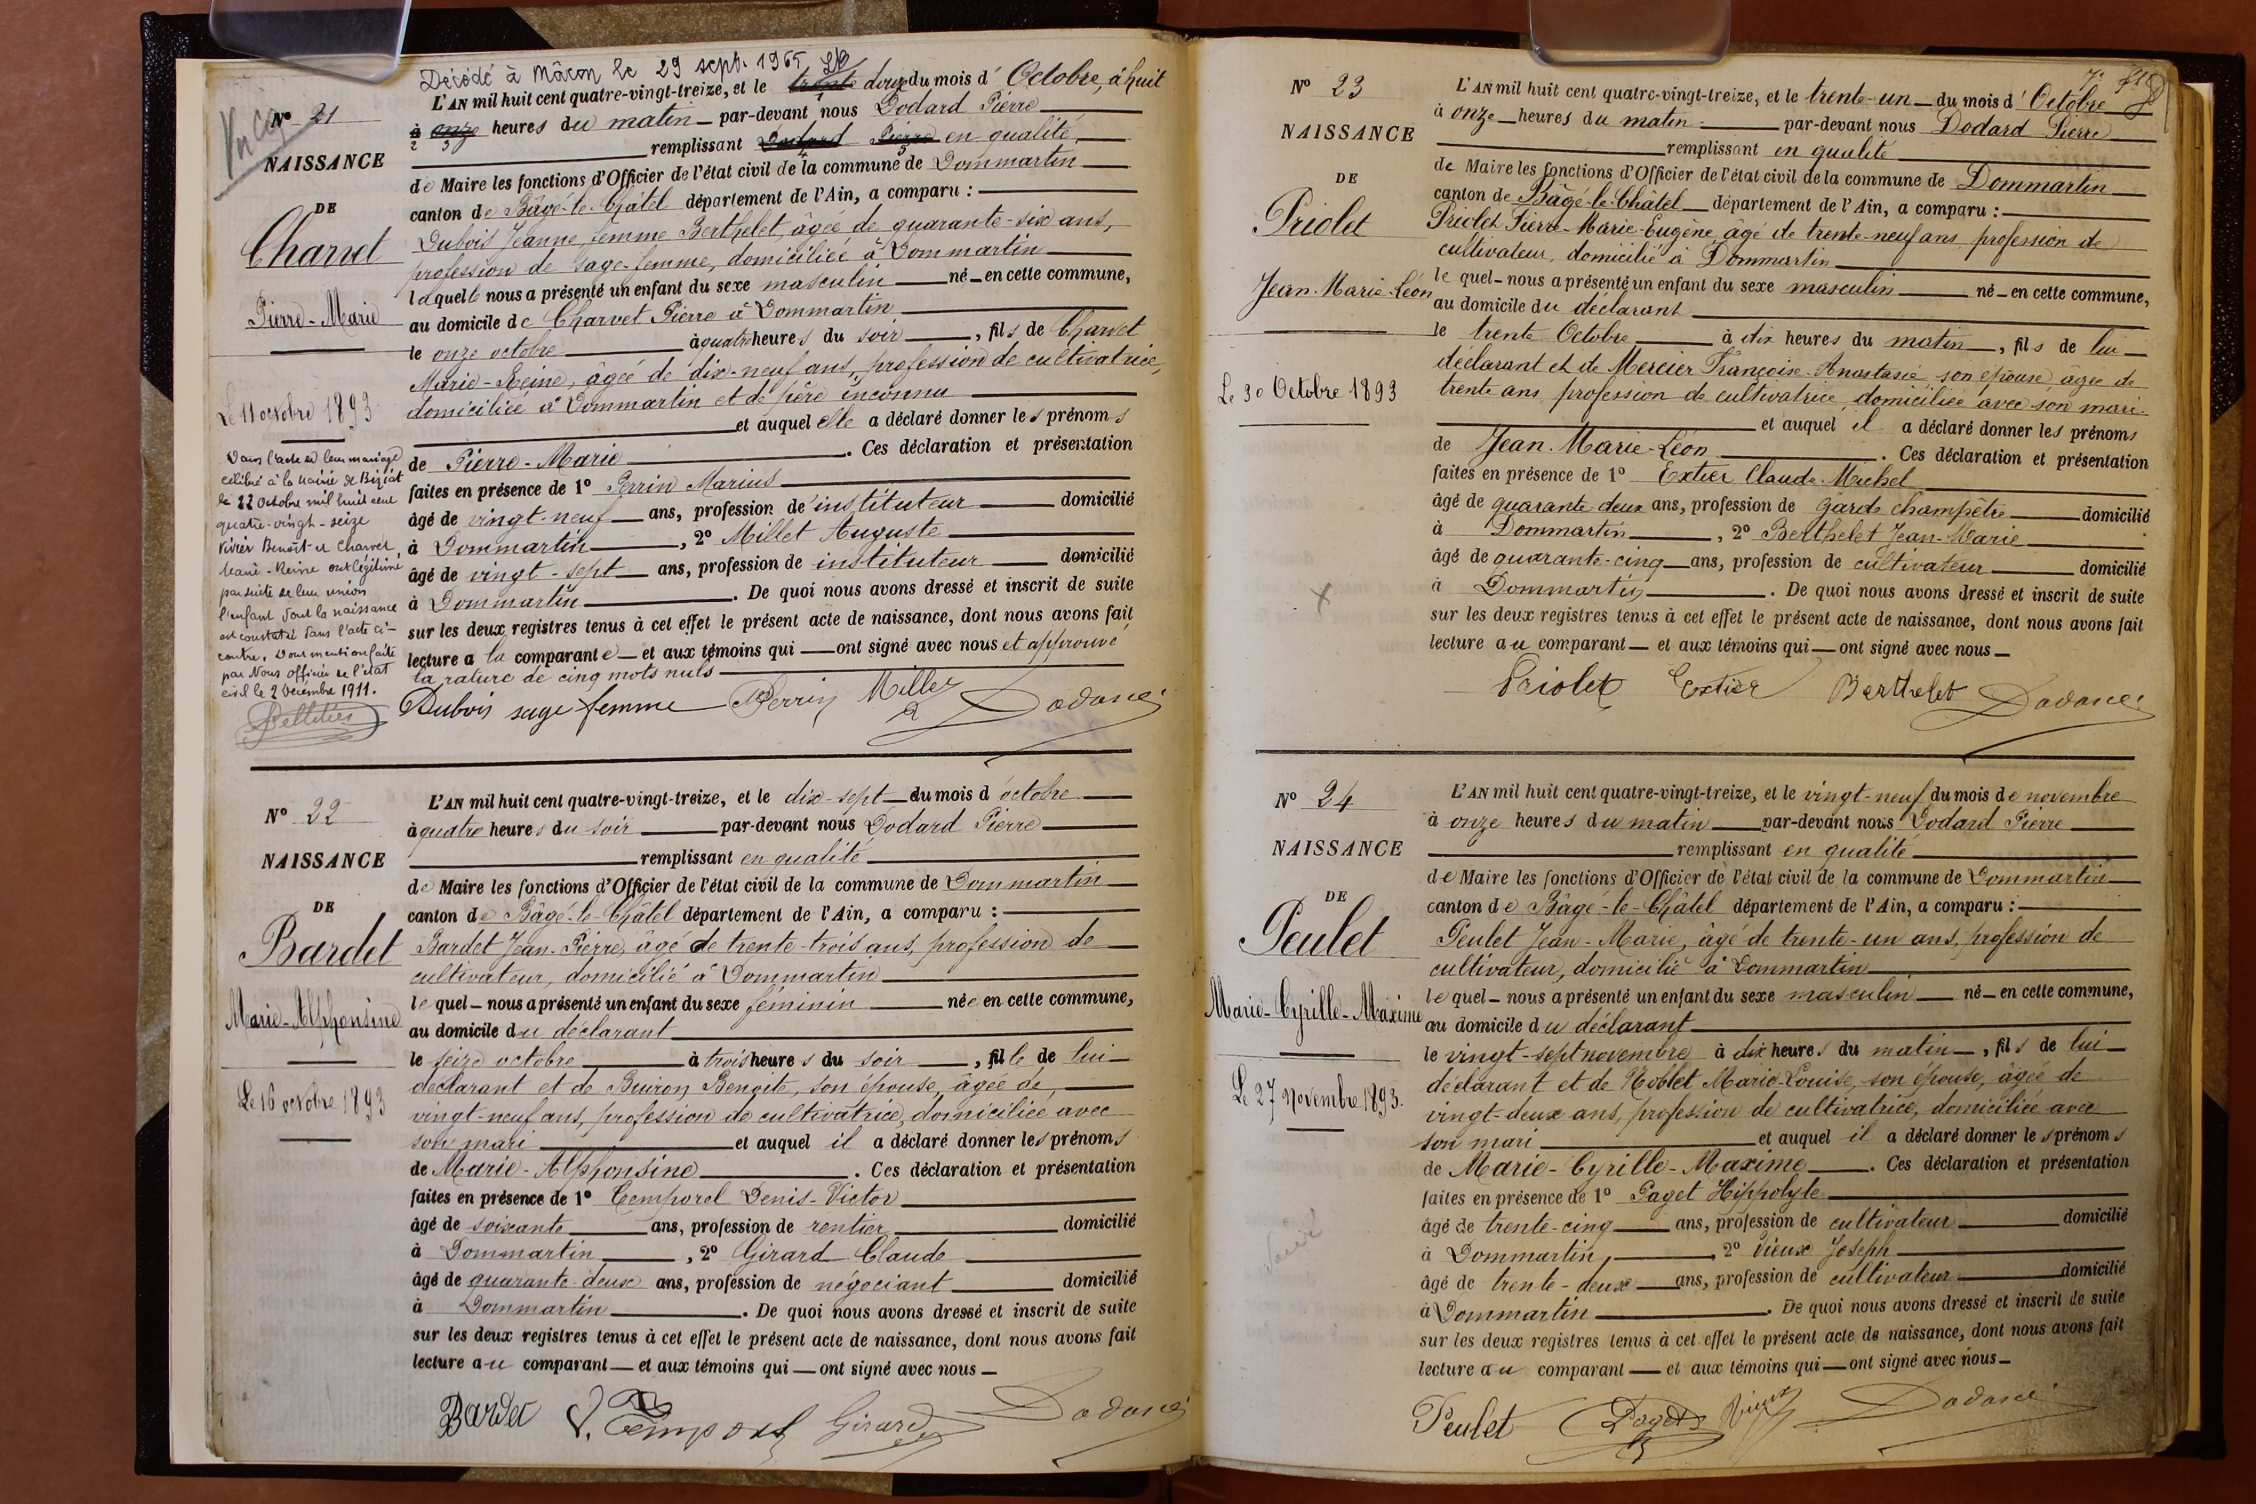 Décédé à Mâcon le 29 sept. 1965
N° 21
NAISSANCE
DE
Charvet
Pierre-Marie
Le 11 octobre 1893
Dans l'acte de leur mariage
célébré à la mairie de Biziat
le 22 octobre mil huit cent
quatre-vingt-seize
Benoît et Charvet
Marie-Reine ont légitimé
par suite de leur union
l'enfant dont la naissance
est constatée dans l'acte ci-
contre. Dont mention faite
par Nous officier de l'état
civil le 2 Décembre 1911.
L'AN mil huit cent quatre-vingt-treize, et le trente douze du mois d'Octobre, à huit
à onze heures du matin par-devant nous Dodard Pierre
remplissant Dodard Pierre en qualité
de Maire les fonctions d'Officier de l'état civil de la commune de Dommartin
canton de Bâgé-le-Châtel département de l'Ain, a comparu :
Dubois Jeanne, femme Berthelet, âgée de quarante-six ans,
profession de sage-femme, domiciliée à Dommartin
laquelle nous a présenté un enfant du sexe masculin né en cette commune,
au domicile de Charvet Pierre à Dommartin
le onze octobre à quatre heures du soir, fils de Charvet
Marie-Reine, âgée de dix-neuf ans, profession de cultivatrice,
domiciliée à Dommartin et de père inconnu
et auquel elle a déclaré donner les prénoms
de Pierre-Marie. Ces déclaration et présentation
faites en présence de 1° Perrin Marius
âgé de vingt-neuf ans, profession d'instituteur domicilié
à Dommartin, 2° Millet Auguste
âgé de vingt-sept ans, profession de instituteur domicilié
à Dommartin. De quoi nous avons dressé et inscrit de suite
sur les deux registres tenus à cet effet le présent acte de naissance, dont nous avons fait
lecture a la comparante et aux témoins qui ont signé avec nous et approuvé
la rature de cinq mots nuls
Dubois sage femme Perrin Millet
N° 22
NAISSANCE
DE
Bardet
Marie-Alphonsine
Le 16 octobre 1893
L'AN mil huit cent quatre-vingt-treize, et le dix-sept du mois d'octobre
à quatre heures du soir par-devant nous Dodard Pierre
remplissant en qualité
de Maire les fonctions d'Officier de l'état civil de la commune de Dommartin
canton de Bâgé-le-Châtel département de l'Ain, a comparu :
Bardet Jean-Pierre, âgé de trente-trois ans, profession de
cultivateur, domicilié à Dommartin
lequel nous a présenté un enfant du sexe féminin née en cette commune,
au domicile du déclarant
le seize octobre à trois heures du soir, fille de lui
déclarant et de Buiron Benoite, son épouse, âgée de
vingt-neuf ans, profession de cultivatrice, domiciliée avec
son mari et auquel il a déclaré donner les prénoms
de Marie-Alphonsine. Ces déclaration et présentation
faites en présence de 1° Temporel Denis-Victor
âgé de soixante ans, profession de rentier domicilié
à Dommartin, 2° Girard Claude
âgé de quarante-deux ans, profession de négociant domicilié
à Dommartin. De quoi nous avons dressé et inscrit de suite
sur les deux registres tenus à cet effet le présent acte de naissance, dont nous avons fait
lecture au comparant et aux témoins qui ont signé avec nous
Bardet Girard
N° 23
NAISSANCE
DE
Priolet
Jean-Marie-Léon
Le 30 Octobre 1893
L'AN mil huit cent quatre-vingt-treize, et le trente-un du mois d'Octobre
à onze heures du matin par-devant nous Dodard Pierre
remplissant en qualité
de Maire les fonctions d'Officier de l'état civil de la commune de Dommartin
canton de Bâgé-le-Châtel département de l'Ain, a comparu :
Priolet Pierre-Marie-Eugène âgé de trente-neuf ans profession de
cultivateur, domicilié à Dommartin
lequel nous a présenté un enfant du sexe masculin né en cette commune,
au domicile du déclarant
le trente Octobre à dix heures du matin, fils de lui
déclarant et de Mercier Françoise-Anastasie son épouse, âgée de
trente ans, profession de cultivatrice, domiciliée avec son mari
et auquel il a déclaré donner les prénoms
de Jean-Marie-Léon. Ces déclaration et présentation
faites en présence de 1° Extier Claude-Michel
âgé de quarante deux ans, profession de garde champêtre domicilié
à Dommartin, 2° Berthelet Jean-Marie
âgé de quarante-cinq ans, profession de cultivateur domicilié
à Dommartin. De quoi nous avons dressé et inscrit de suite
sur les deux registres tenus à cet effet le présent acte de naissance, dont nous avons fait
lecture au comparant et aux témoins qui ont signé avec nous
Priolet Extier Berthelet
N° 24
NAISSANCE
DE
Peulet
Marie-Cyrille-Maxime
Le 27 Novembre 1893.
L'AN mil huit cent quatre-vingt-treize, et le vingt-neuf du mois de novembre
à onze heures du matin par-devant nous Dodard Pierre
remplissant en qualité
de Maire les fonctions d'Officier de l'état civil de la commune de Dommartin
canton de Bâgé-le-Châtel département de l'Ain, a comparu :
Peulet Jean-Marie, âgé de trente-un ans, profession de
cultivateur, domicilié à Dommartin
lequel nous a présenté un enfant du sexe masculin né en cette commune,
au domicile du déclarant
le vingt-sept novembre à dix heures du matin, fils de lui
déclarant et de Noblet Marie-Louise, son épouse, âgée de
vingt-deux ans, profession de cultivatrice, domiciliée avec
son mari et auquel il a déclaré donner les prénoms
de Marie-Cyrille-Maxime. Ces déclaration et présentation
faites en présence de 1° Paget Hippolyte
âgé de trente-cinq ans, profession de cultivateur domicilié
à Dommartin, 2° Vieux Joseph
âgé de trente-deux ans, profession de cultivateur domicilié
à Dommartin. De quoi nous avons dressé et inscrit de suite
sur les deux registres tenus à cet effet le présent acte de naissance, dont nous avons fait
lecture au comparant et aux témoins qui ont signé avec nous
Peulet Paget Vieux